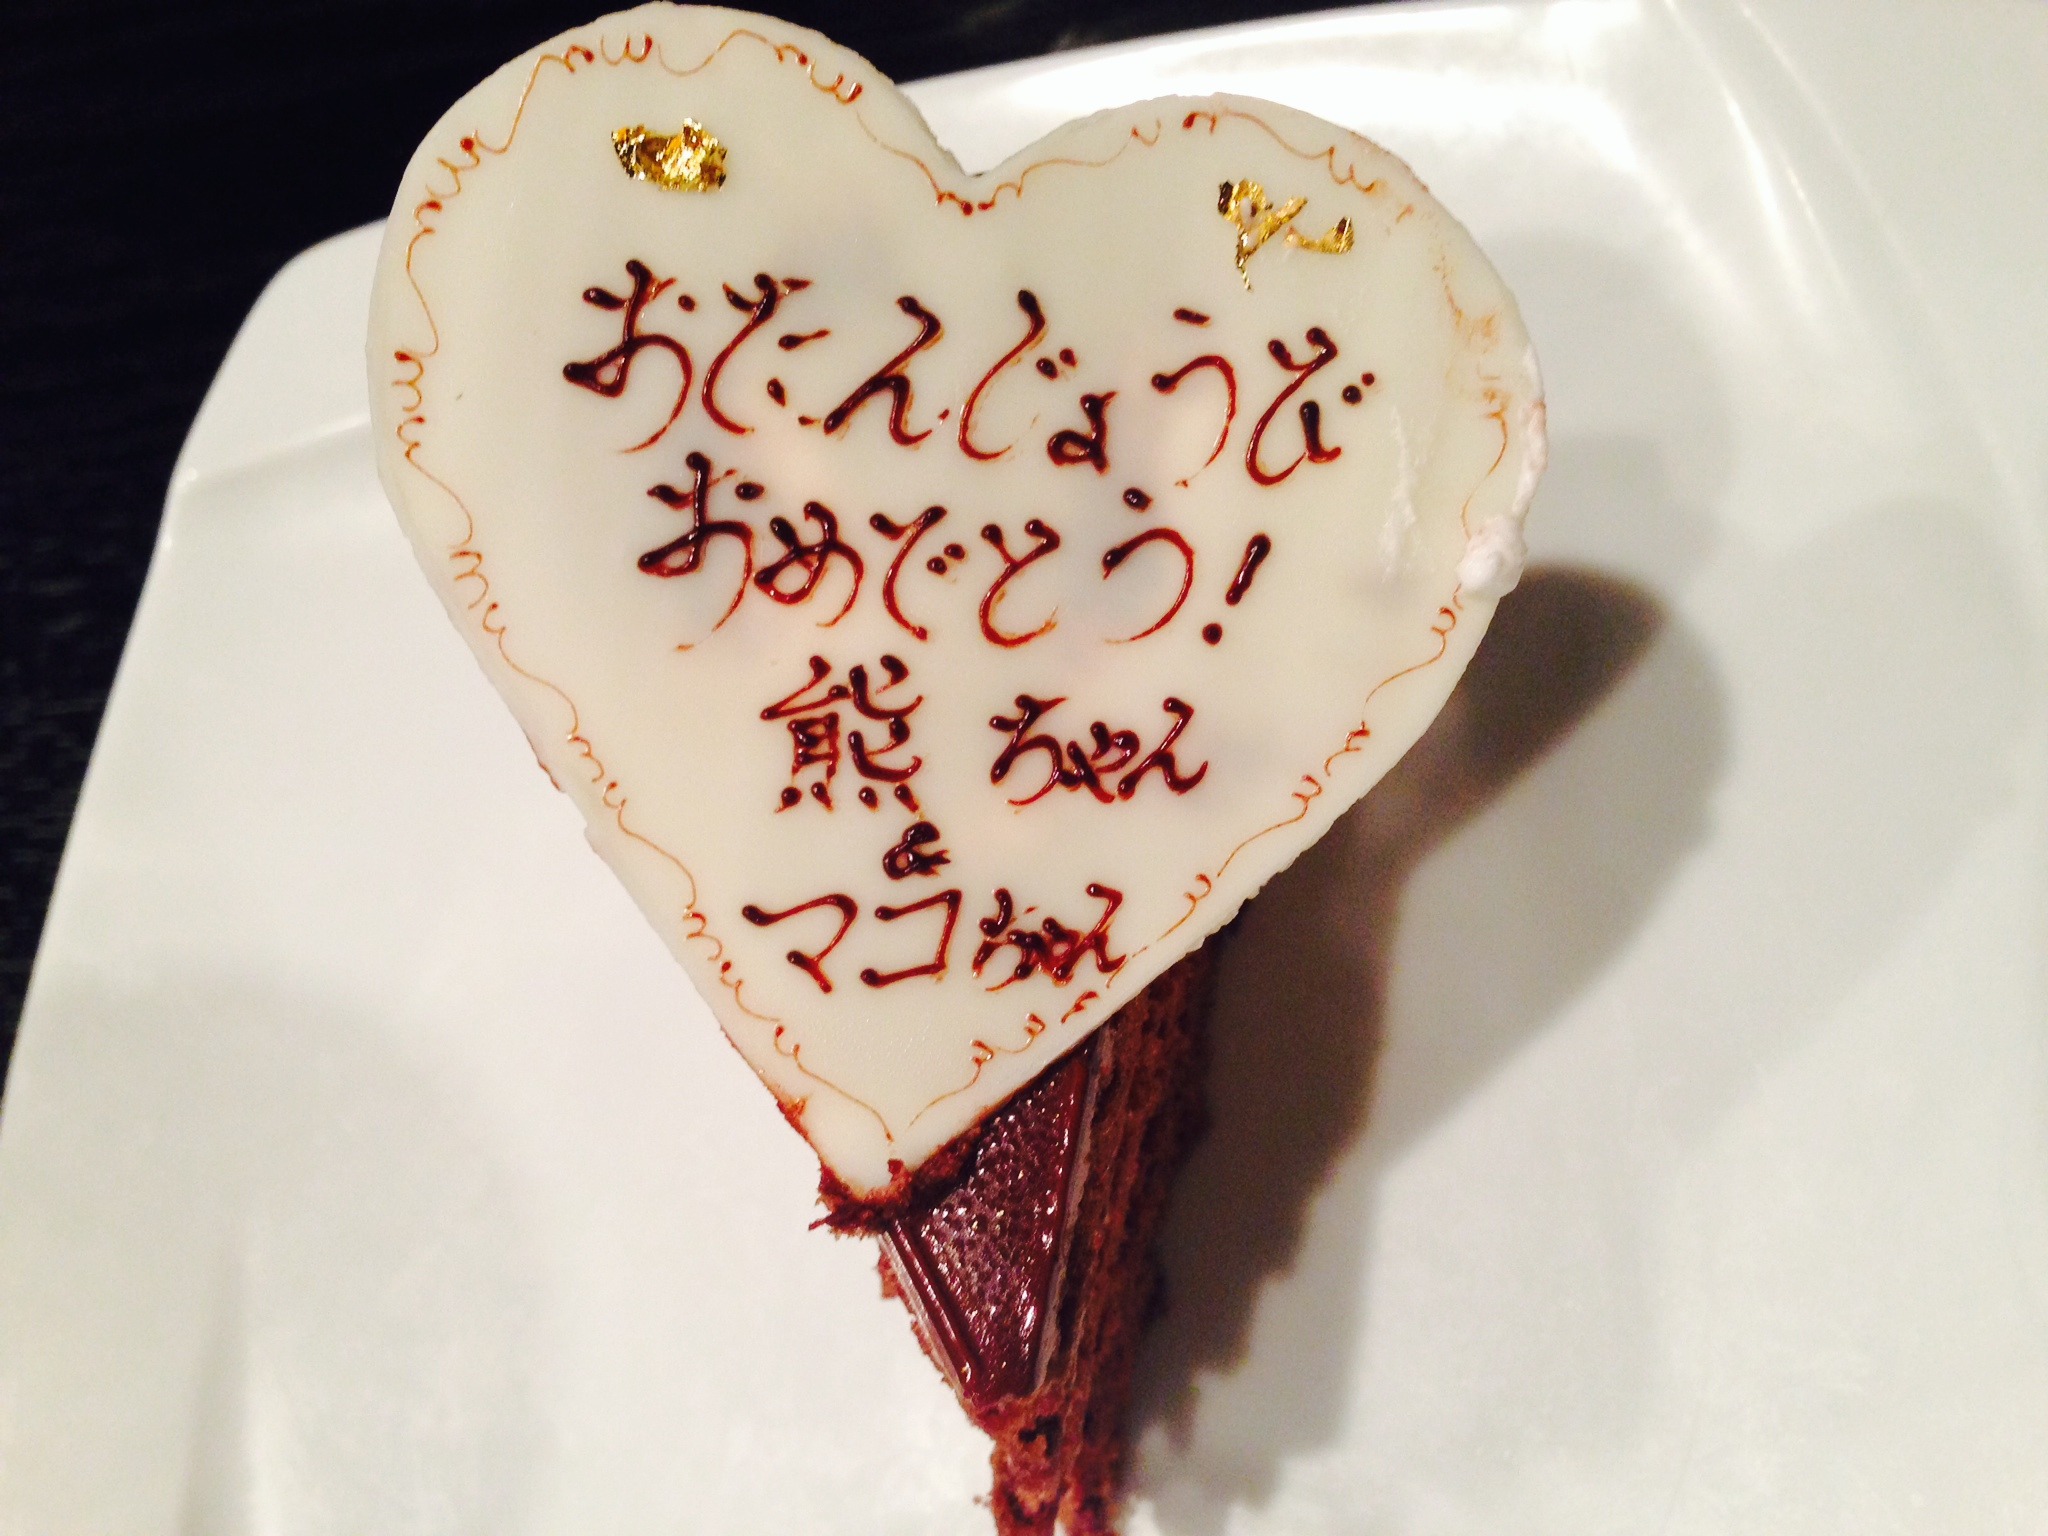 おたんじょうび
おめでとう!
熊ちゃん
&
マコちゃん